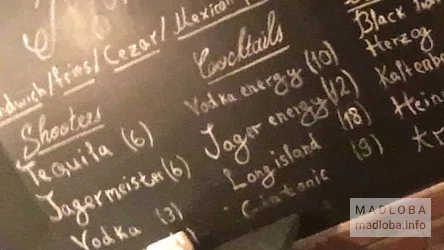 /fries/Cezar/Mexican
Shooters
Tequila (6)
Jagermeister (6)
Vodka (3)
Cocktails
Vodka energy (10)
Jager energy (12)
Long island (18)
Gin tonic (9)
Black
Herzog
MADLOBA
madloba.info